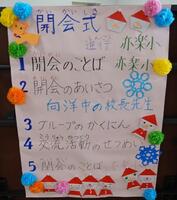 開会式
進行 赤楽小
1 開会のことば 赤楽小
2 開会のあいさつ
向洋中の校長先生
3 グループのかくにん
4 交流活動のせつめい
5 閉会のことば